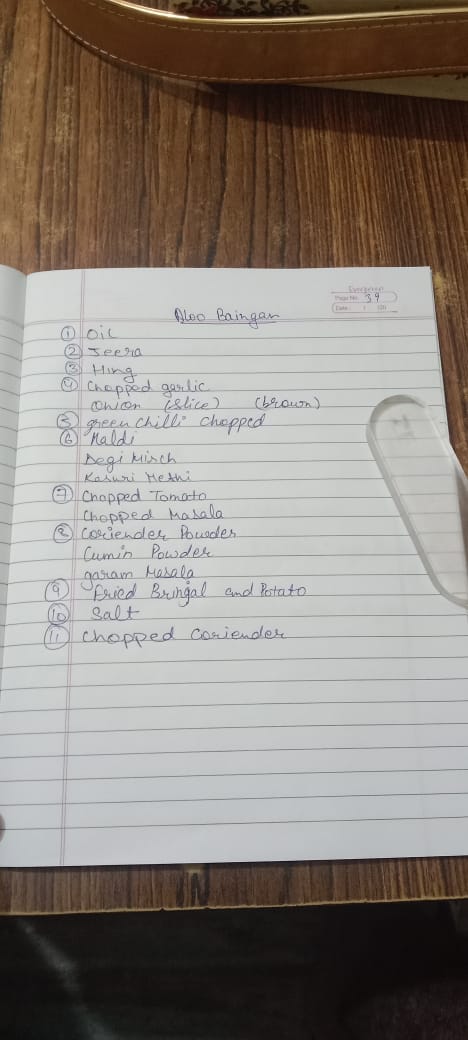 Evergreen
Page No. 39
Date: / 20
Aloo Baingan
① Oil
② Jeera
③ Hing
④ Chopped garlic
Onion (Slice) (brown)
⑤ green chilli chopped
⑥ Haldi
Degi Mirch
Kasuri Methi
⑦ Chopped Tomato
Chopped Masala
⑧ Coriender Powder
Cumin Powder
garam Masala
⑨ fried Bringal and Potato
⑩ Salt
⑪ Chopped Coriender